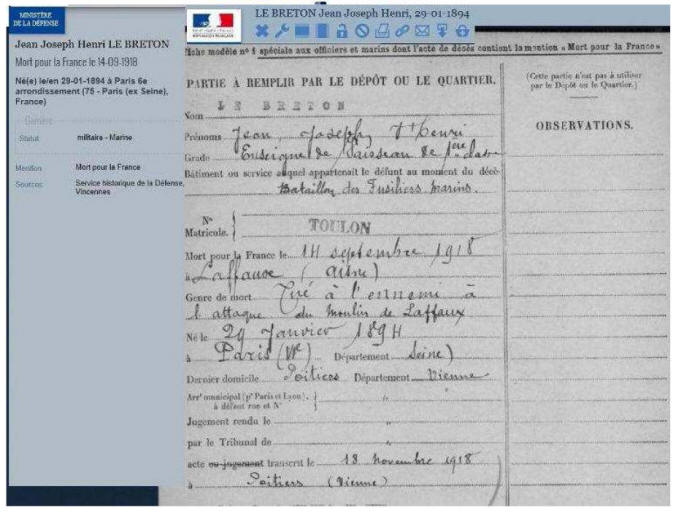 MINISTÈRE
DE LA DÉFENSE
LE BRETON Jean Joseph Henri, 29-01-1894
Jean Joseph Henri LE BRETON
Mort pour la France le 14-09-1918
Né(e) le/en 29-01-1894 à Paris 6e
arrondissement (75 - Paris (ex Seine),
France)
Carrière
Statut militaire - Marine
Mention Mort pour la France
Sources Service historique de la Défense,
Vincennes
Fiche modèle n° 1 spéciale aux officiers et marins dont l'acte de décès contient la mention « Mort pour la France »
PARTIE À REMPLIR PAR LE DÉPÔT OU LE QUARTIER.
LE BRETON
Nom
Prénoms Jean, Joseph, Henri
Grade Enseigne de Vaisseau de 1ère classe
Bâtiment ou service auquel appartenait le défunt au moment du décès
Bataillon des Fusiliers marins.
N°
Matricule. TOULON
Mort pour la France le 14 septembre 1918
à Laffaux (Aisne)
Genre de mort Tué à l'ennemi à
l'attaque du Moulin de Laffaux
Né le 29 Janvier 1894
à Paris (VIe) Département Seine)
Dernier domicile Poitiers Département Vienne
Arrt municipal (pr Paris et Lyon),
à défaut rue et N°
Jugement rendu le
par le Tribunal de
acte ou jugement transcrit le 18 novembre 1918
à Poitiers (Vienne)
(Cette partie n'est pas à utiliser
par le Dépôt ou le Quartier.)
OBSERVATIONS.